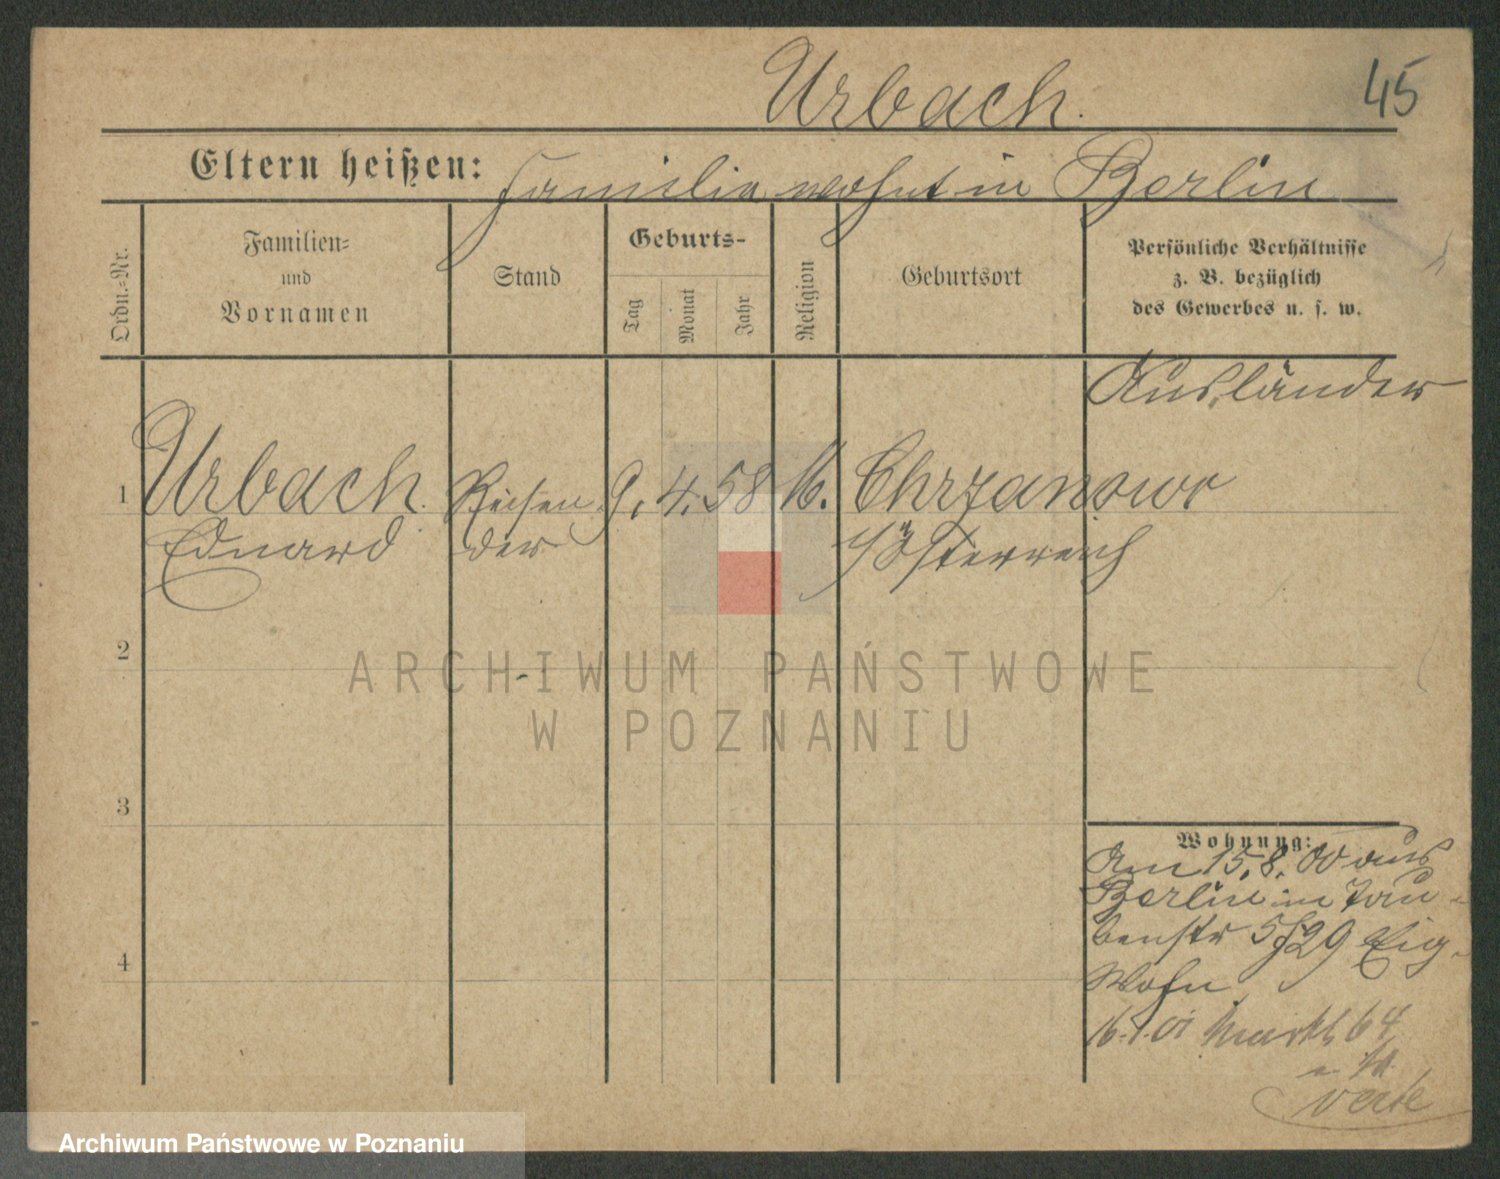 Urbach.
45
Eltern heißen: Familie wohnt in Berlin
Ordn.-Nr.
Familien-
und
Vornamen
Stand
Geburts-
Tag
Monat
Jahr
Religion
Geburtsort
Persönliche Verhältnisse
z. B. bezüglich
des Gewerbes u. s. w.
Ausländer
1 Urbach. Reisen 9. 4. 58 M. Chrzanowo
Eduard der i/Österreich
2
3
4
Wohnung:
Am 15.8.00 aus
Berlin im Tau-
benstr 29 Eig.
Wohn
16.1.01 Markt 64
verte
ARCHIWUM PAŃSTWOWE
W POZNANIU
Archiwum Państwowe w Poznaniu